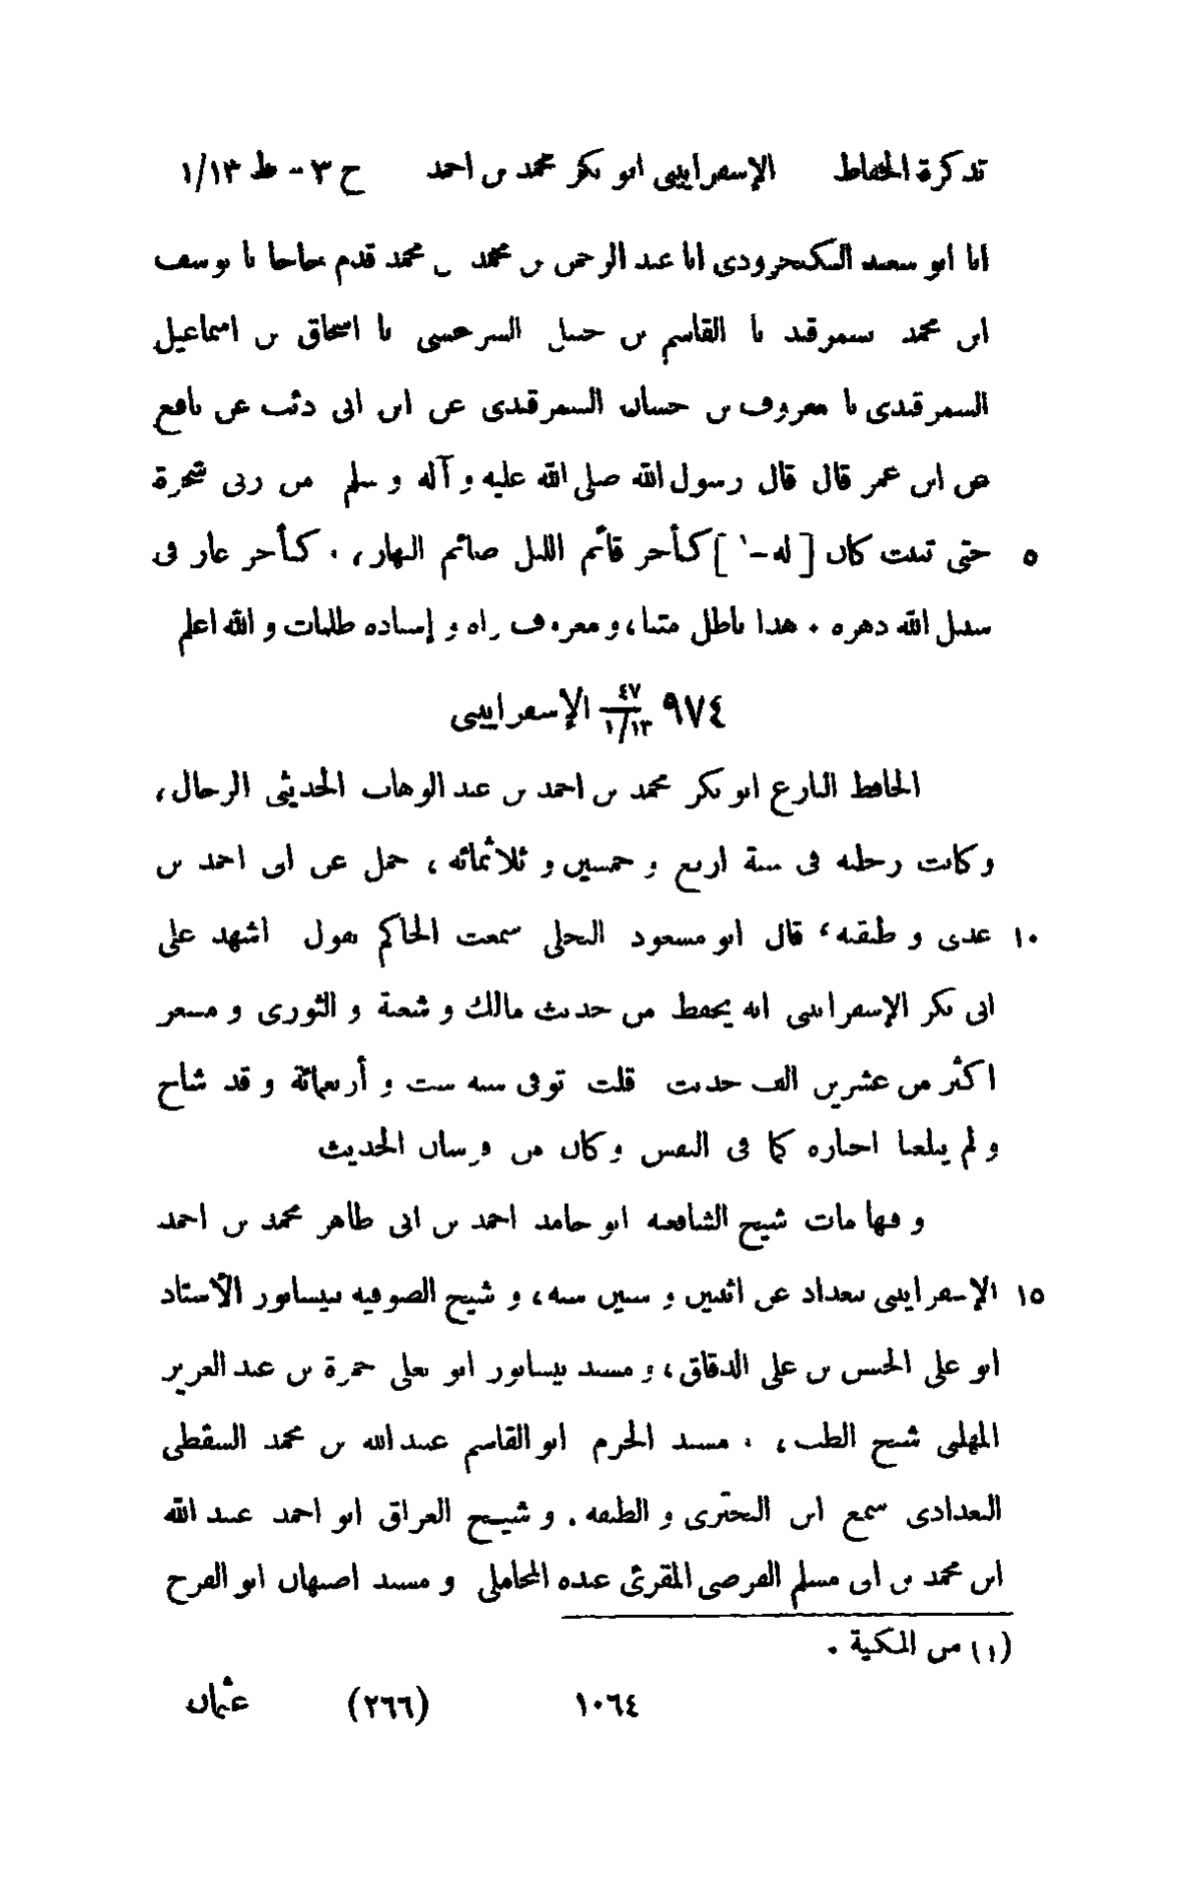 تذكرة الحفاظ الإسفراييني ابو بكر محمد بن احمد ج ٣ - ط ١/١٣
انا ابو سعيد الكنجرودي انا عبد الرحمن بن محمد بن محمد قدم حاجا نا يوسف
ابن محمد بسمرقند نا القاسم بن حنبل السرخسي نا اسحاق بن اسماعيل
السمرقندي نا معروف بن حسان السمرقندي عن ابن ابي ذئب عن نافع
عن ابن عمر قال قال رسول الله صلى الله عليه وآله و سلم من ربى شجرة
٥ حتى تنبت كان [ له -١ ] كأجر قائم الليل صائم النهار، و كأجر غاز في
سبيل الله دهره ٠ هذا باطل متنا، و معروف واه و إسناده ظلمات و الله اعلم
٩٧٤ ٤٧ ١/١٣ الإسفراييني
الحافظ البارع ابو بكر محمد بن احمد بن عبد الوهاب الحديثي الرحال،
و كانت رحلته في سنة اربع و خمسين و ثلاثمائه، حمل عن ابي احمد بن
١٠ عدي و طبقته، قال ابو مسعود البجلي سمعت الحاكم يقول اشهد على
ابي بكر الإسفراييني انه يحفظ من حديث مالك و شعبة و الثوري و مسعر
اكثر من عشرين الف حديث قلت توفي سنة ست و أربعمائة و قد شاخ
و لم يبلغنا اخباره كما في النفس و كان من فرسان الحديث
و فيها مات شيخ الشافعيه ابو حامد احمد بن ابي طاهر محمد بن احمد
١٥ الإسفراييني ببغداد عن اثنين و ستين سنه، و شيخ الصوفيه بنيسابور الأستاذ
ابو علي الحسن بن علي الدقاق، و مسند نيسابور ابو يعلى حمزة بن عبد العزيز
المهلبي شيخ الطب، و مسند الحرم ابو القاسم عبيد الله بن محمد السقطي
البغدادي سمع ابن البختري و الطبقه. و شيخ العراق ابو احمد عبيد الله
ابن محمد بن ابي مسلم الفرضي المقرئ عنده المحاملي و مسند اصبهان ابو الفرج
(١) من المكية ٠
١٠٦٤ (٢٦٦) عثمان